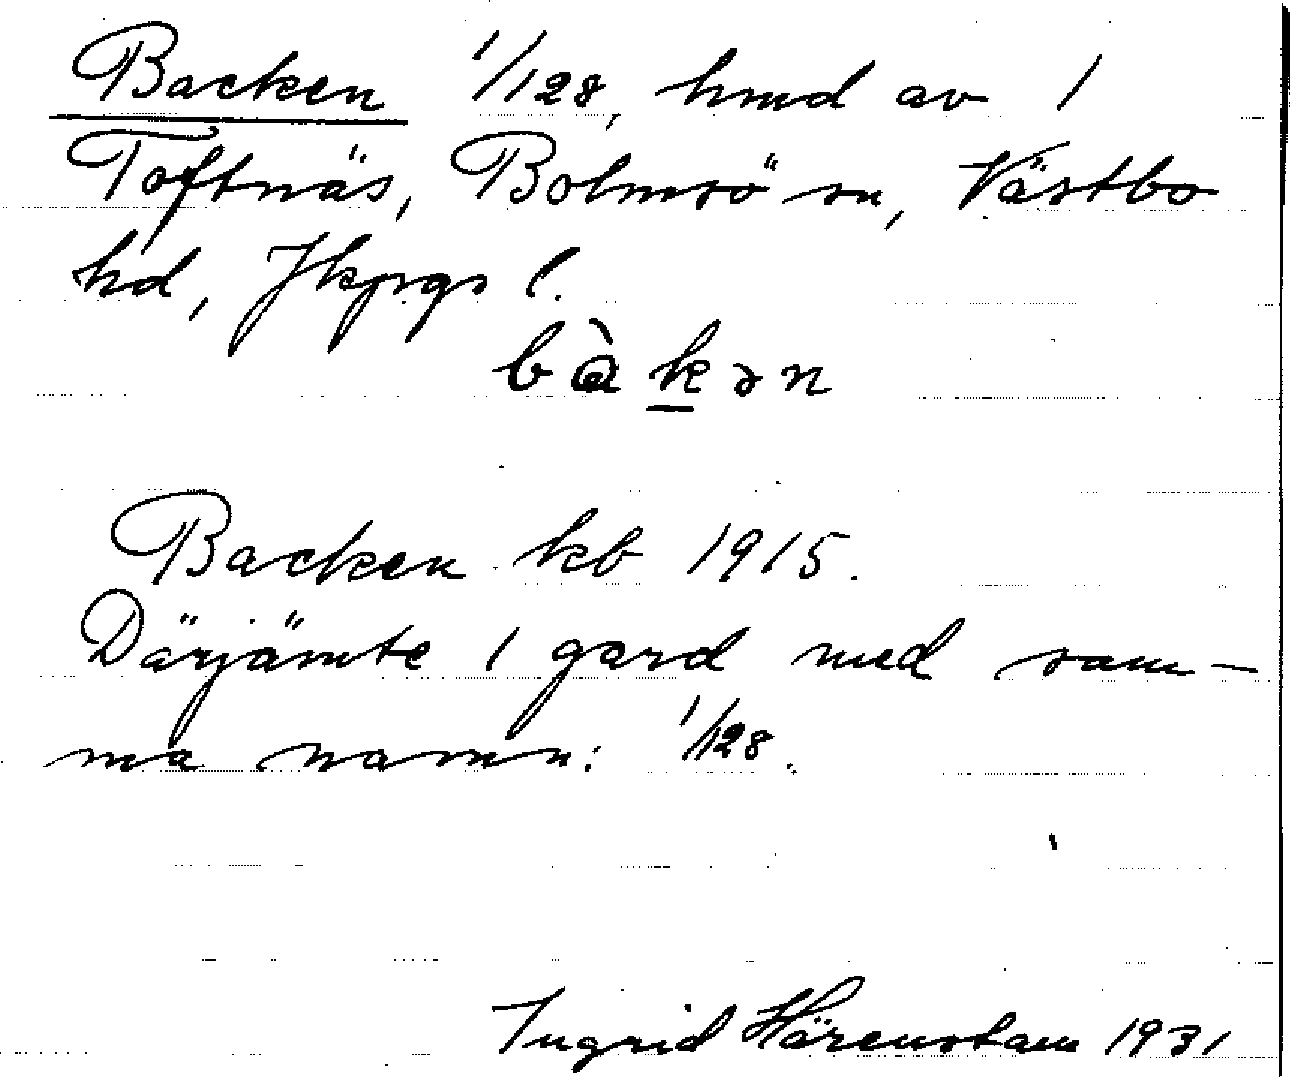 Backen 1/128, hmd av 1
Toftnäs, Bolmsö sn, Västbo
hd, Jkpgs l.
bàkən
Backen kb 1915.
Därjämte 1 gard med sam-
ma namn: 1/128.
Ingrid Härenstam 1931